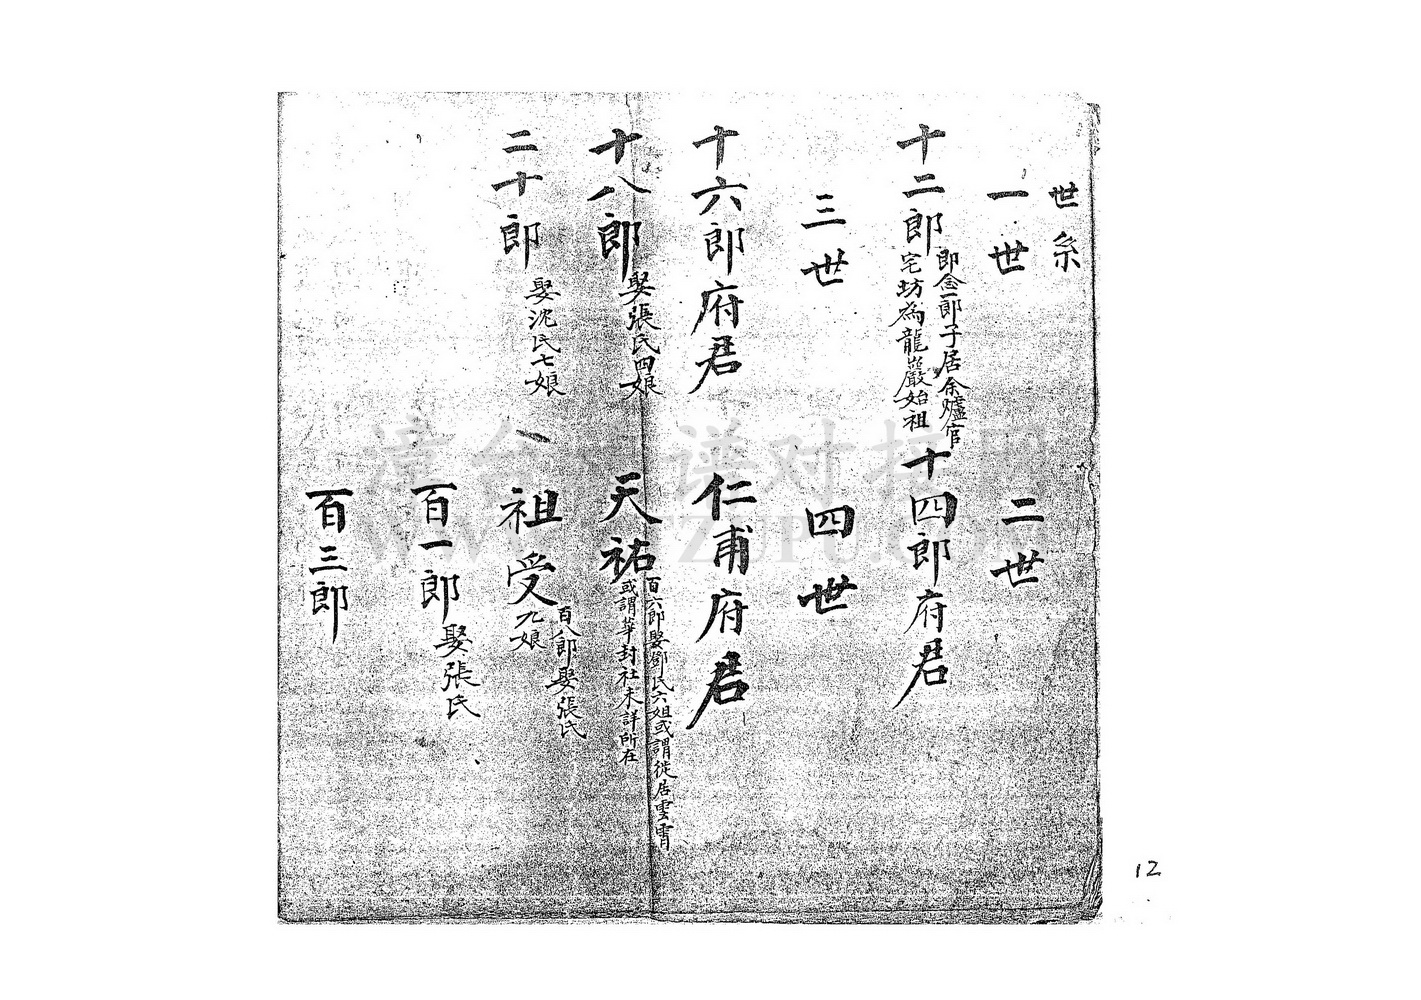 世系
一世
二世
十二郎
即念一郎子居余爐官
宅坊為龍巖始祖
十四郎府君
三世
四世
十六郎府君
仁甫府君
十八郎
娶張氏四娘
天祐
百六郎娶鄧氏六姐或謂徙居雲霄
或謂華封社未詳所在
二十郎
娶沈氏七娘
祖受
百八郎娶張氏
九娘
百一郎
娶張氏
百三郎
12
漳台族谱对接网
WWW.ZTZUPU.COM